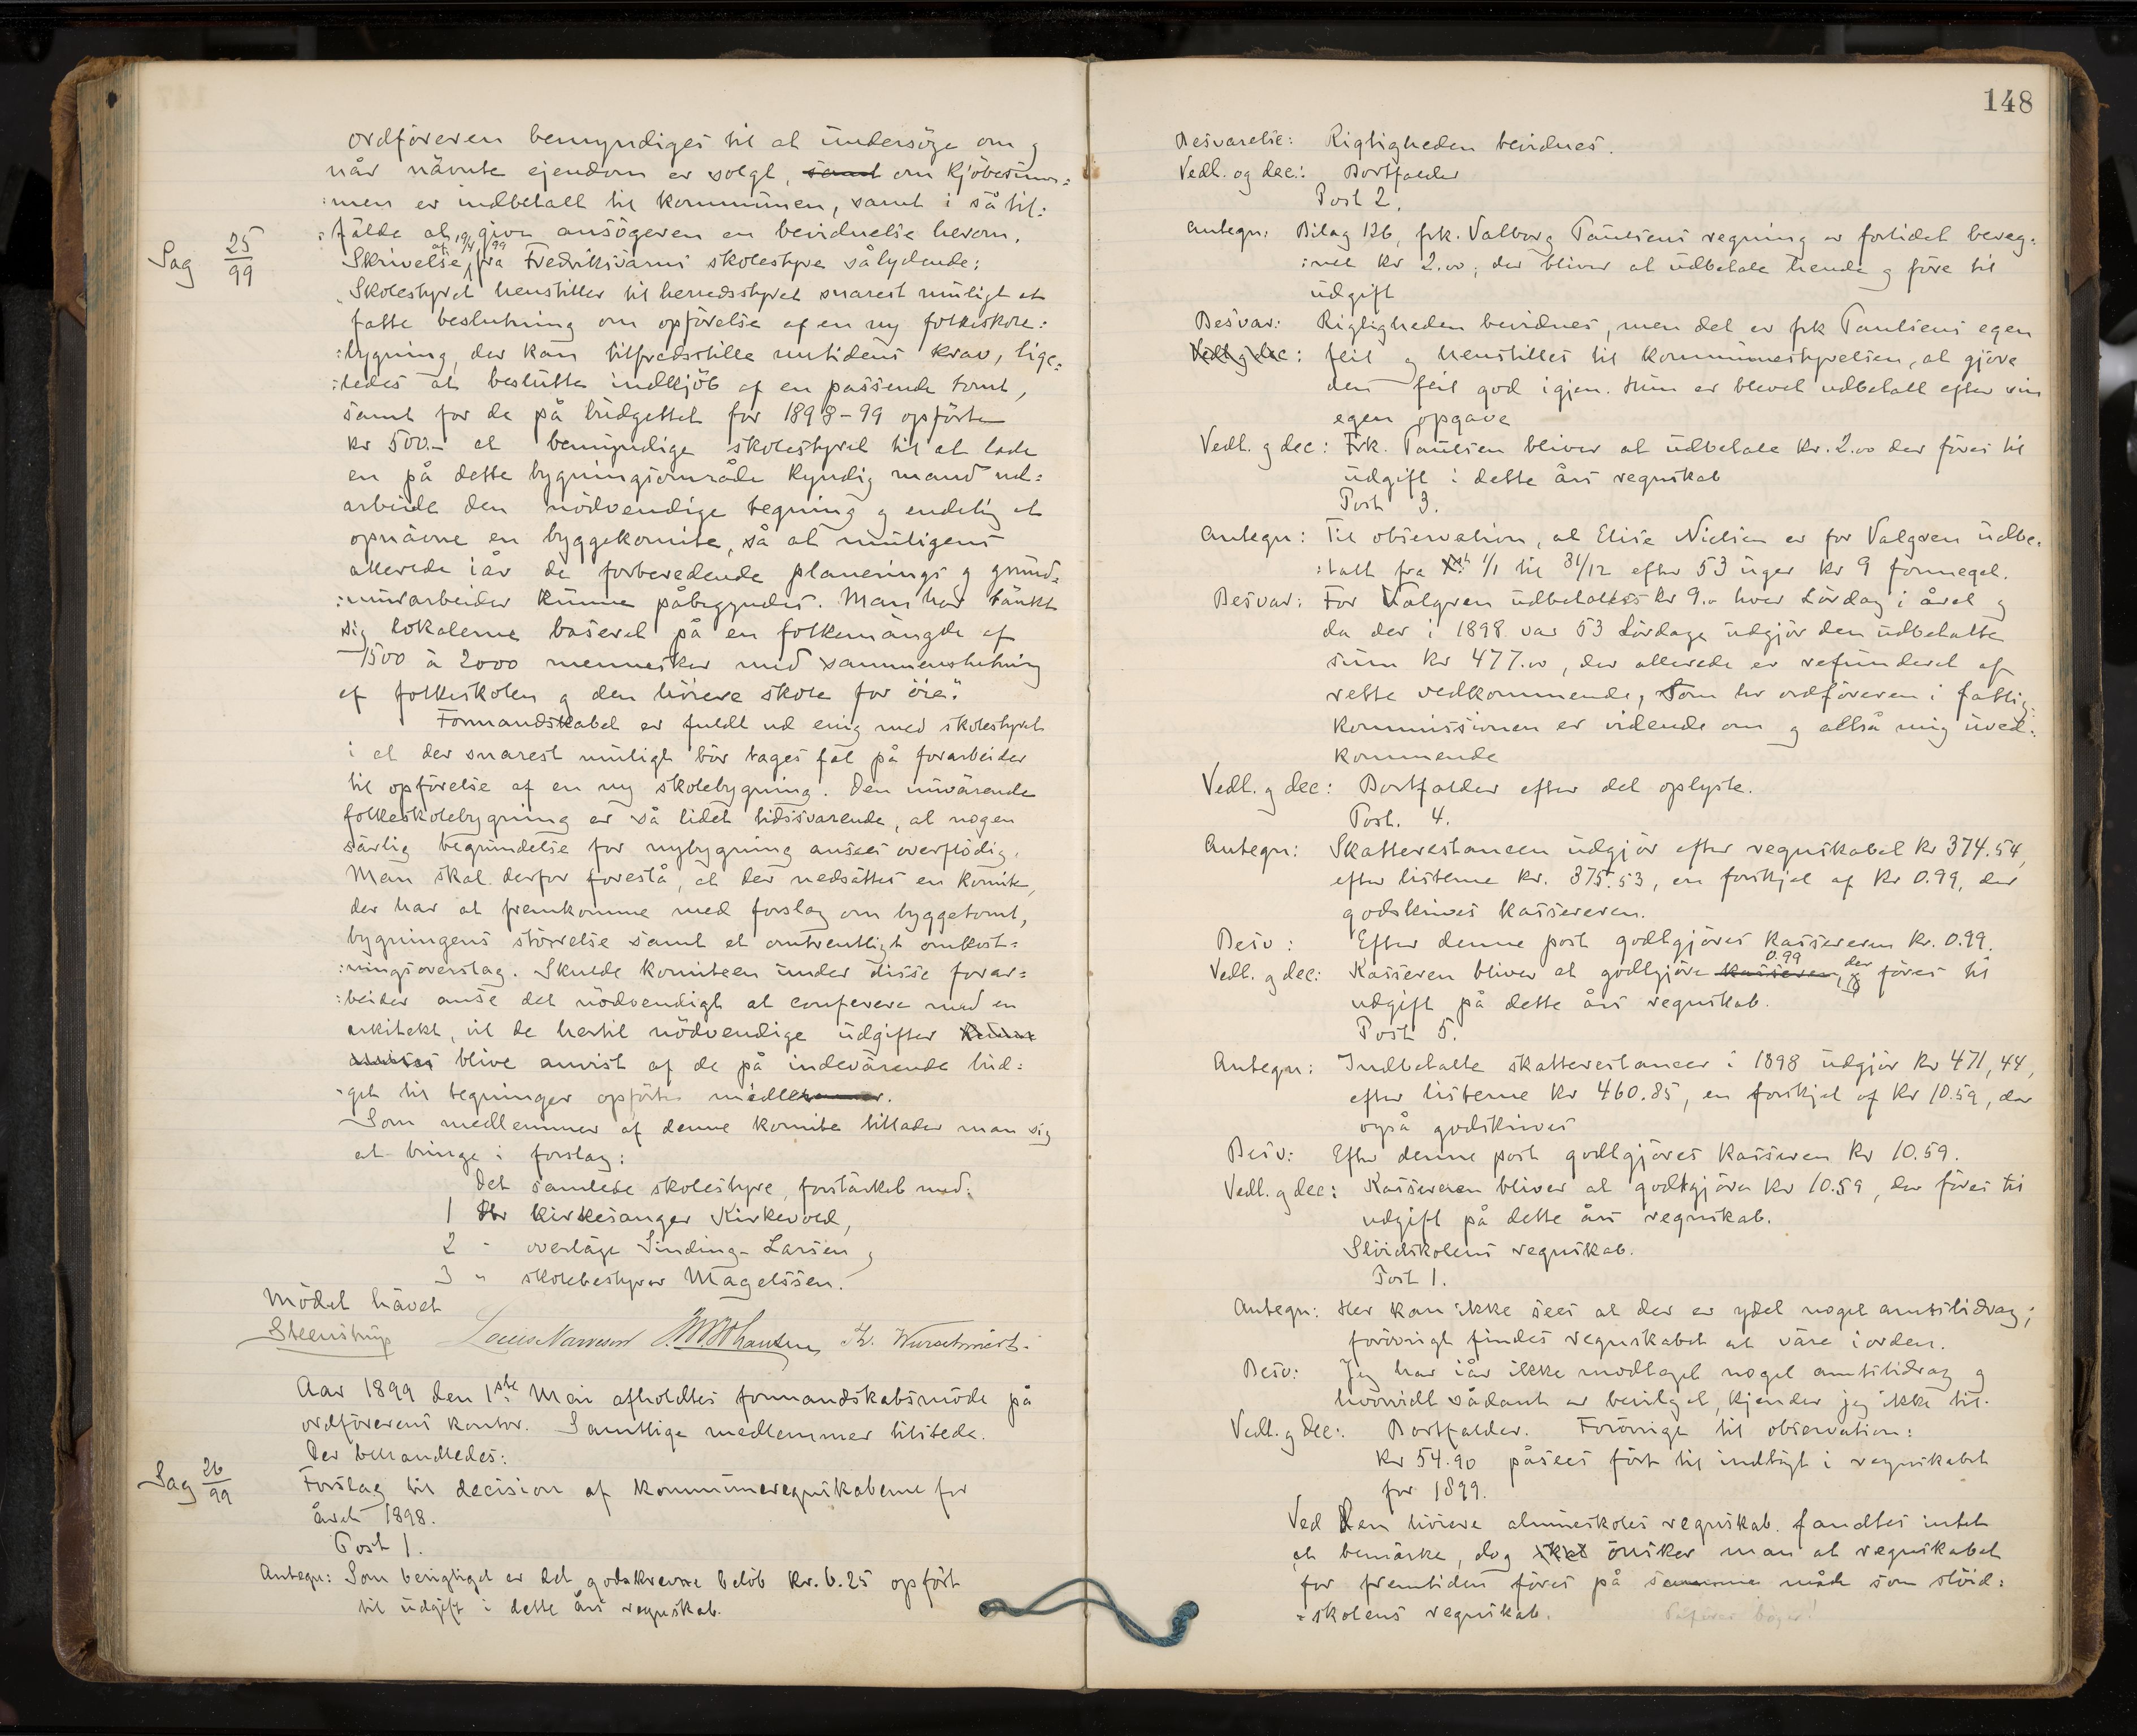 ordføreren bemyndiges til at undersøge om og
når nävnte ejendom er solgt, samt om kjøbesum=
:men er indbetalt til kommunen, samt i så til:
:fälde at give ansøgeren en bevidnelse herom.
Sag 25/99
Skrivelse af 19/4 99 fra Fredriksværns skolestyre sålydende:
"Skolestyret henstiller til herredsstyret snarest muligt at
fatte beslutning om opførelse af en ny folkeskole:
:bygning, der kan tilfredsstille nutidens krav, lige=
:ledes at beslutte indkjøb af en passende tomt,
samt for de på budgettet for 1898-99 opførte
kr 500.- at bemyndige skolestyret til at lade
en på dette bygningsområde kyndig mand ud=
arbeide den nødvendige tegning og endelig at
opnävne en byggekomite, så at muligens
allerede iår de forberedende planerings og grund=
:murarbeider kunne påbegyndes. Man har tänkt
sig lokalerne baseret på en folkemängde af
1500 à 2000 mennesker med sammenslutning
af folkeskolen og den høiere skole for øie."
Formandskabet er fuldt ud enig med skolestyret
i at der snarest muligt bør tages fat på forarbeider
til opførelse af en ny skolebygning. Den nuvärende
folkeskolebygning er så lidet tidssvarende, at nogen
särlig begrundelse for nybygning ansees overflødig.
Man skal derfor foreslå, at der nedsättes en komite,
der har at fremkomme med forslag om byggetomt,
bygningens størrelse samt et omtrentligt omkost=
:ningsoverslag. Skulde komiteen under disse forar=
:beider anse det nødvendigt at conferere med en
arkitekt, vil de hertil nødvendige udgifter kunne
blive anvist af de på indevärende bud=
-get til tegninger opførte midler.
Som medlemmer af denne komite tillader man sig
at bringe i forslag:
Det samlede skolestyre, forstärket med:
1 Hr kirkesanger Kirkevold,
2 " overläge Sinding-Larsen og
3 " skolebestyrer Magelssen.
Mødet hävet
Steenstrup Th. Wurschmidt.
Aar 1899 den 1ste Mai afholdtes formandskabsmøde på
ordførerens kontor. Samtlige medlemmer tilstede.
Der behandledes:
Sag 26/99
Forslag til decision af kommuneregnskaberne for
året 1898.
Post 1.
Antegn: Som berigtiget er det godskrevne beløb kr. 6.25 opført
til udgift i dette års regnskab.
148
Besvarelse: Rigtigheden bevidnes.
Vedl. og dec.: Bortfalder
Post 2.
Antegn: Bilag 126, frk. Valborg Paulsens regning er forlidet bereg=
:net kr 2.00, der bliver at udbetale hende og føre til
udgift
Besvar: Rigtigheden bevidnes, men det er frk Paulsens egen
Vedl. og dec: feil og henstilles til kommunestyrelsen, at gjøre
den feil god igjen. Hun er blevet udbetalt efter sin
egen opgave
Vedl. og dec: Frk. Paulsen bliver at udbetale kr. 2.00 der føres til
udgift i dette års regnskab
Post 3.
Antegn: Til observation, at Elise Nielsen er for Valgren udbe=
:talt fra 1/1 til 31/12 efter 53 uger kr 9 formeget.
Besvar: For Valgren udbetaltes kr 9.- hver Lørdag i året og
da der i 1898 var 53 Lørdage udgjør den udbetalte
sum kr 477.00, der allerede er refunderet af
rette vedkommende, som hr ordføreren i fattig=
kommissionen er vidende om og altså mig uved=
kommende
Vedl. og dec: Bortfalder efter det oplyste.
Post. 4.
Antegn: Skatterestancen udgjør efter regnskabet kr 374.54,
efter listerne kr. 375.53, en forskjel af kr 0.99, der
godskrives kassereren.
Besv: Efter denne post godtgjøres kassereren kr. 0.99.
Vedl. og dec: Kasseren bliver at godtgjøre kasseren 0.99, der føres til
udgift på dette års regnskab.
Post 5.
Antegn: Indbetalte skatterestancer i 1898 udgjør kr 471,44,
efter listerne kr 460.85, en forskjel af kr 10.59, der
også godskrives
Besv: Efter denne post godtgjøres kasseren kr 10.59.
Vedl. og dec: Kassereren bliver at godtgjøre kr 10.59, der føres til
udgift på dette års regnskab.
Sløidskolens regnskab.
Post 1.
Antegn: Her kan ikke sees at der er ydet noget amtsbidrag;
forøvrigt findes regnskabet at väre i orden.
Besv: Jeg har iår ikke modtaget noget amtsbidrag og
hvorvidt sådant er bevilget, kjender jeg ikke til.
Vedl. og dec: Bortfalder. Forøvrigt til observation:
kr 54.90 påsees ført til indtägt i regnskabet
for 1899.
Ved Den høiere almueskoles regnskab fandtes intet
at bemärke, dog ønsker man at regnskabet
for fremtiden føres på samme måde som sløid:
=skolens regnskab.